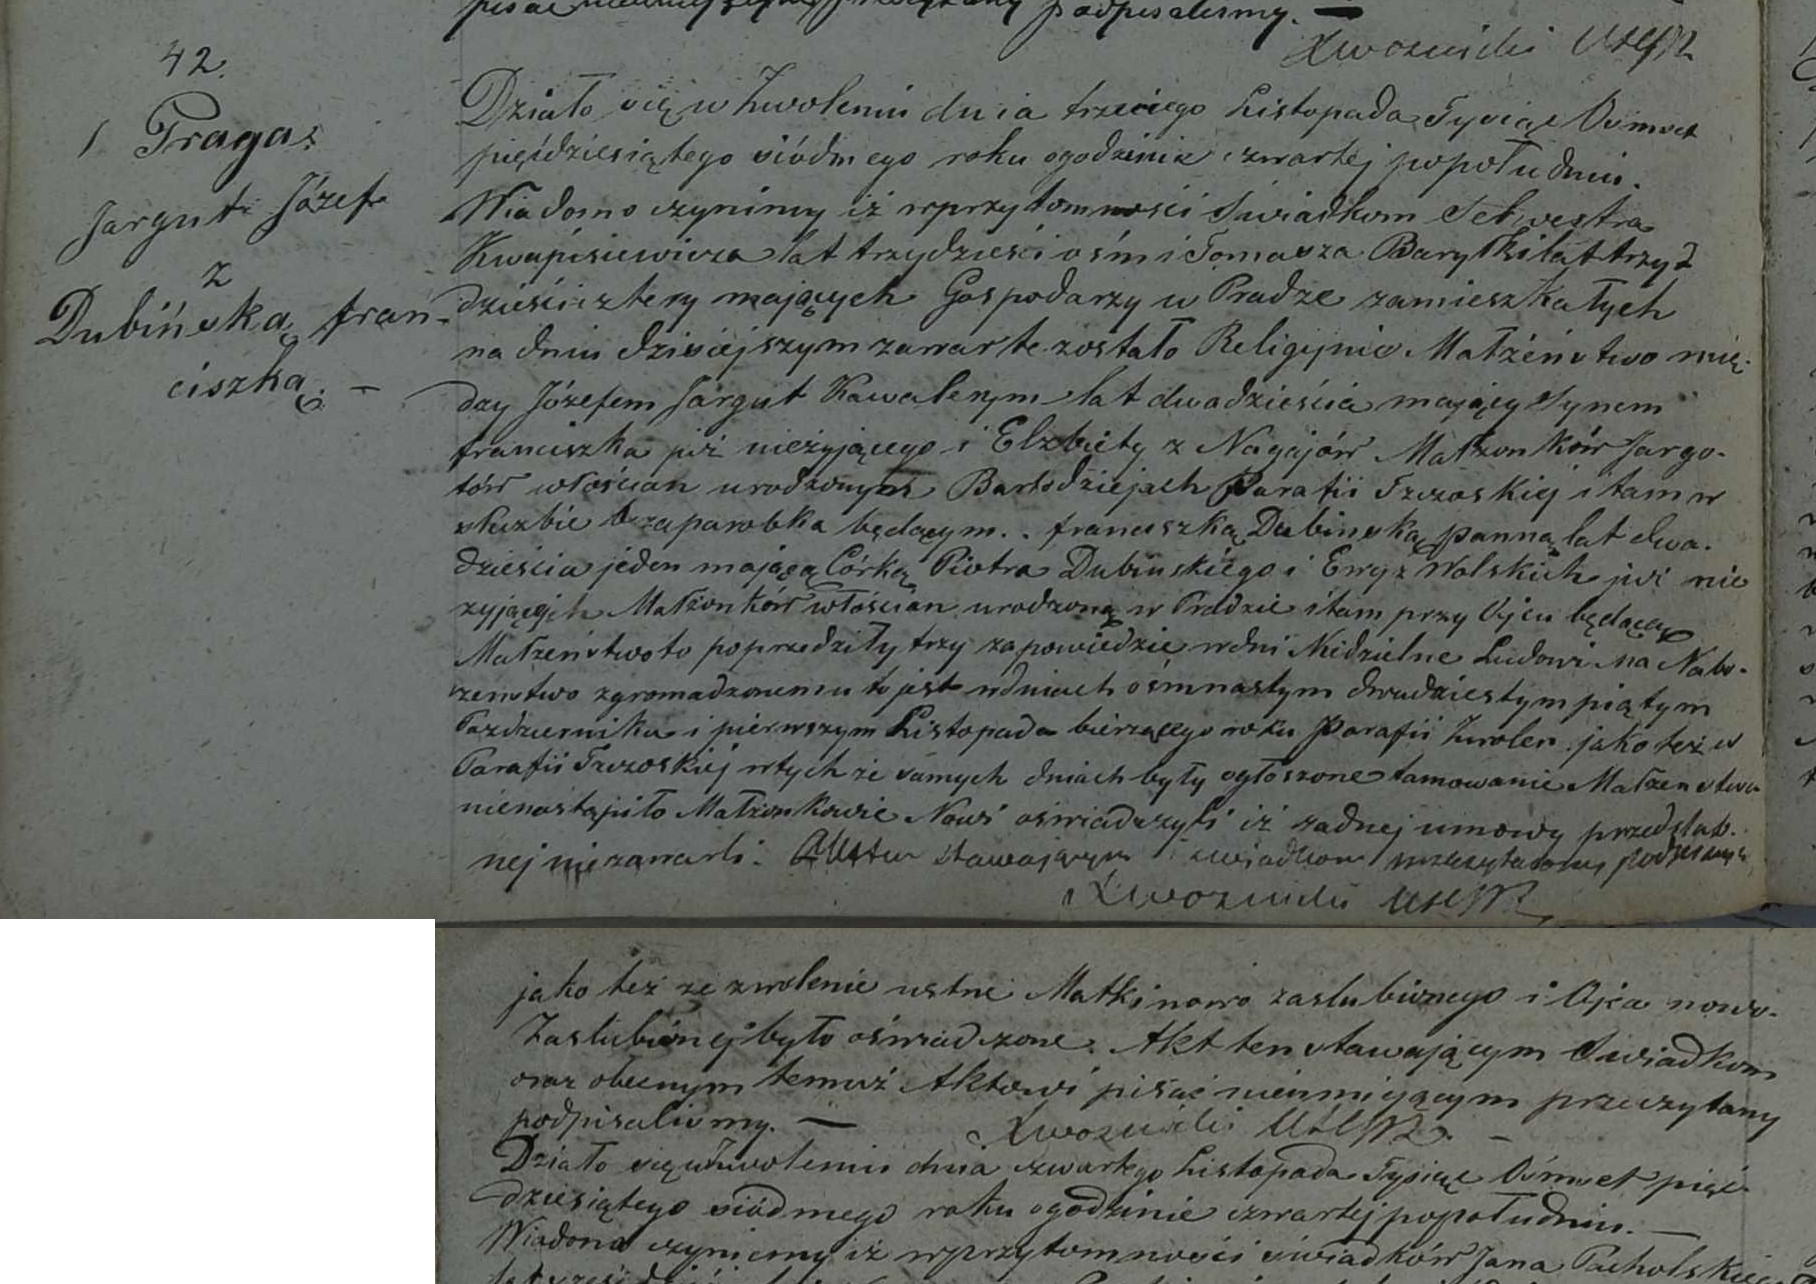 pisać nieumiejącym przeczytany podpisaliśmy. —
42.
1 Praga.
Jargut Józef
z
Dubińską Fran-
ciszką. —
Działo się w Zwoleniu dnia trzeciego Listopada Tysiąc Ośmset
pięćdziesiątego siódmego roku ogodzinie czwartej popołudniu.
Wiadomo czynimy iż wprzytomności Swiadkom Selwestra
Kwapisiewicza lat trzydzieści ośm i Tomasza Barylski lat trzy
dzieści cztery mających Gospodarzy w Pradze zamieszkałych
na dniu dzisiejszym zawarte zostało Religijnie Małżeństwo mię-
dzy Józefem Jargut Kawalerym lat dwadzieścia mający Synem
Franciszka już nieżyjącego i Elzbiety z Nagajów Małżonków Jargo-
tów włościan urodzonym Bartodziejach Parafii Tczoskiej i tam w
służbie zaparobka będącym. Franciszką Dubinską panną lat dwa-
dzieścia jeden mającą Córką Piotra Dubinskiego i Ewy z Wolskich już nie
żyjących Małżonków włościan urodzoną w Pradzie i tam przy Ojcu będącą
Małżeństwo to poprzedziły trzy zapowiedzie wdni Niedzielne Ludowi na Nabo-
żenstwo zgromadzonemu to jest wdniach ośmnastym dwudziestym piątym
Pazdziernika i pierwszym Listopada bierzącego roku Parafii Zwolen jako też w
Parafii Tczoskiej wtych że samych dniach były ogłoszone tamowanie Małżenstwa
nienastąpiło Małżonkowie Nowi oświadczyli iż żadnej umowy przedślub-
nej niezawarli. stawającym i swiadkom
jako też ze zwolenie ustne Matki nowo zaslubionego i Ojca nowo-
Zaslubionej było oświadczone. Akt ten stawającym Swiadkom
oraz obecnym temuż Aktowi pisać nieumiejącym przeczytany
podpisaliśmy. —
Działo się w Zwoleniu dnia czwartego Listopada Tysiąc Ośmset pięć-
dziesiątego siódmego roku ogodzinie czwartej popołudniu. —
Wiadomo czyniemy iż wprzytomności świadków Jana